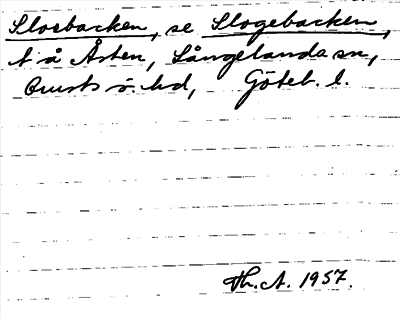 Sloebacken, se Slogebacken,
t å Åsten, Långelanda sn,
Orusts v. hd, Göteb. l.
Th. A. 1957.